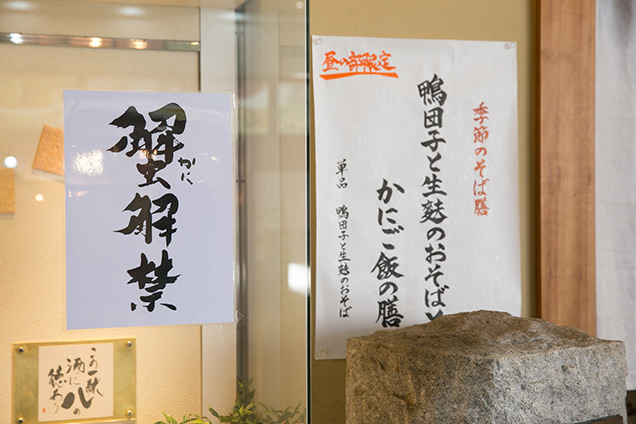 昼の部限定
季節のそば膳
鴨団子と生麩のおそばと
かにご飯の膳
単品 鴨団子と生麩のおそば
蟹解禁
かに
この一献
酒に八の
徳あり